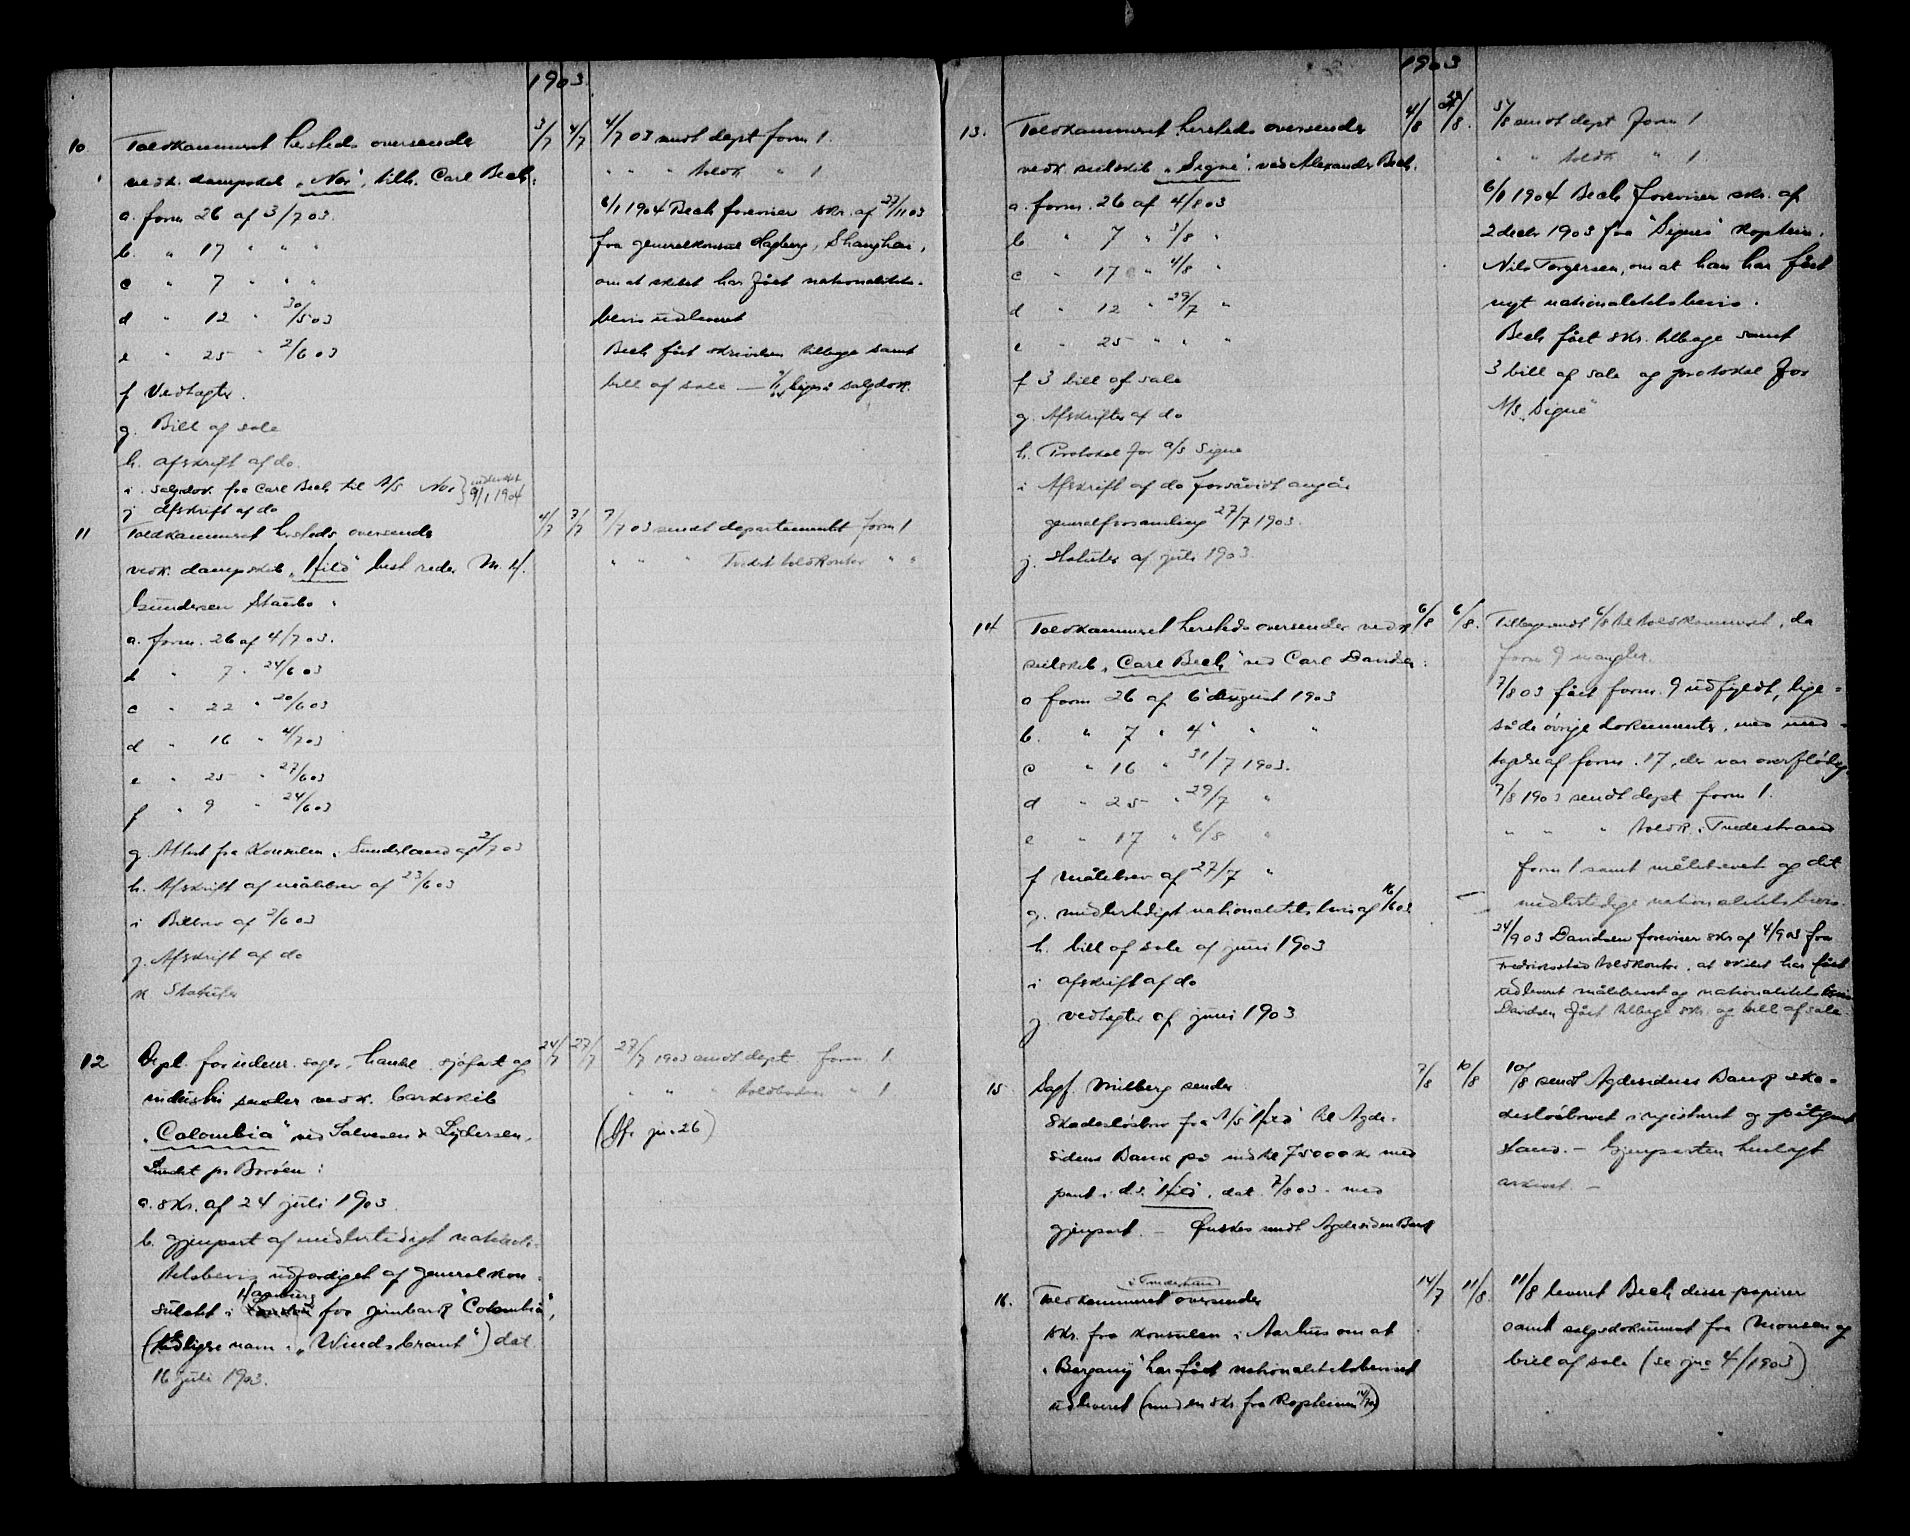 1903.
10 Toldkammeret hersteds oversende 3/7 4/7
vedk. dampskib „Nor", tilh. Carl Bech:
a. form 26 af 3/7 03.
b. " 17 " " "
c " 7 " " "
d " 12 " 30/5 03
e " 25 " 2/6 03
f Vedtægter.
g. Bill of sale
h. afskrift af do.
i. salgsdok fra Carl Bech til A/S Nor } 9/1 1904
j afskrift af do
4/7 03 sendt dept form 1.
" " " toldk " 1
6/1 1904 Bech foreviser skr. af 27/11 03
fra generalkonsul Hagberg, Shanghai,
om at skibet har fået nationalitets-
bevis udleveret
Bech fået skrivelsen tilbage samt
bill of sale — ligeså salgsdok.
11 Toldkammeret hersteds oversende 4/7 7/7
vedk. dampskib „Hild" best. reder M. H.
Gundersen Staubo.
a. form. 26 af 4/7 03.
b " 7 " 24/6 03
c " 22 " 20/6 03
d " 16 " 4/7 03
e " 25 " 27/6 03
f " 9 " 24/6 03
g. Attest fra Konsulen i Sunderland af 2/7 03
h. Afskrift af målebrev af 23/6 03
i Bilbrev af 2/6 03
j. Afskrift af do
k Statuter
7/7 03 sendt departementet form 1
" " " Tvedes toldkontor " "
12 Dept. for udenr. sager, handel, sjøfart og 24/7 27/7
industri sender vedk. barkskib
„Colombia" ved Salvesen & Lydersen,
Lundet pr Borøen:
a. skr. af 24 juli 1903.
b. gjenpart af midlertidigt nationali-
tetsbevis udfærdiget af generalkon-
Hamburg
sulatet i fra jernbark "Colombia",
(tidligere navn: „Windsbraut") dat.
16 juli 1903.
27/7 1903 sendt dept form. 1.
" " " " 1
(jfr. jr. 26)
1903
13. Toldkammeret hersteds oversender 4/8 5/8.
vedk. seilskib „Signe", ved Alexander Bech.
a. form. 26 af 4/8 03
b " 7 " 3/8 "
c " 17 " 4/8 "
d " 12 " 29/7 "
e " 25 " " "
f 3 bill of sale
g. Afskrifter af do
h. Protokol for A/S Signe
i Afskrift af do forsåvidt angår
generalforsamling 27/7 1903.
j. Statuter af juli 1903.
5/8 sendt dept form 1
" " toldk " 1.
6/1 1904 Bech foreviser skr. af
2 decbr 1903 fra "Signe's" kaptein,
Nils Torgersen, om at han har fået
nyt nationalitetsbevis.
Bech fået skr. tilbage samt
3 bill of sale og protokol for
A/S „Signe"
14 Toldkammeret hersteds oversender vedk 6/8 6/8.
seilskib „Carl Bech" ved Carl Davidsen:
a form 26 af 6 august 1903
b. " 7 " 4 " " "
c " 16 " 31/7 1903.
d " 25 " 29/7 "
e " 17 " 6/8 "
f målebrev af 27/7 "
g. midlertidigt nationalitetsbevis af 16/6 03
h. bill of sale af juni 1903
i afskrift af do
j vedtægter af juni 1903
Tilbagesendt 6/8 til toldkammeret, da
form 9 mangler.
7/8 03 fået form. 9 udfyldt, lige-
så de øvrige dokumenter, med und-
tagelse af form. 17, der var overflødig.
7/8 1903 sendt dept form 1.
" " " toldk. i Tvedestrand
form 1 samt målebrevet og det
midlertidige nationalitetsbevis.
24/9 03 Davidsen foreviser skr af 4/9 03 fra
Fredriksstad toldkontor, at skibet har fået
udleveret målebrevet og nationalitetsbevis
Davidsen fået tilbage skr. og bill of sale
15 Sagf. Milberg sender 7/8 10/8
skadesløsbrev fra A/S "Hild" til Agde-
sidens Bank på indtil 75000 kr med
pant i d.s. "Hild", dat. 7/8 03. med
gjenpart. — Ønskes sendt Agdesidens Bank
10/8 sendt Agdesidens Bank ska-
desløsbrevet i registreret og påtegnet
stand. — Gjenparten henlagt
arkivet. —
16. Toldkammeret i Tvedestrand oversender 14/7 11/8.
skr. fra konsulen i Aarhus om at
„Bergany" har fået nationalitetsbeviset
udleveret (med en skr fra kapteinen 14/7 03)
11/8 leveret Bech disse papirer
samt salgsdokument fra Monsen og
bill of sale (se jno 4/1903)